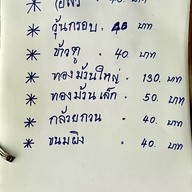 * วุ้นกรอบ . 40 บาท
* ข้าวตู . 40. บาท
* ทองม้วนใหญ่ . 130. บาท
* ทองม้วนเล็ก . 50. บาท
* กล้วยกวน . 40. บาท
* ขนมผิง . 40. บาท